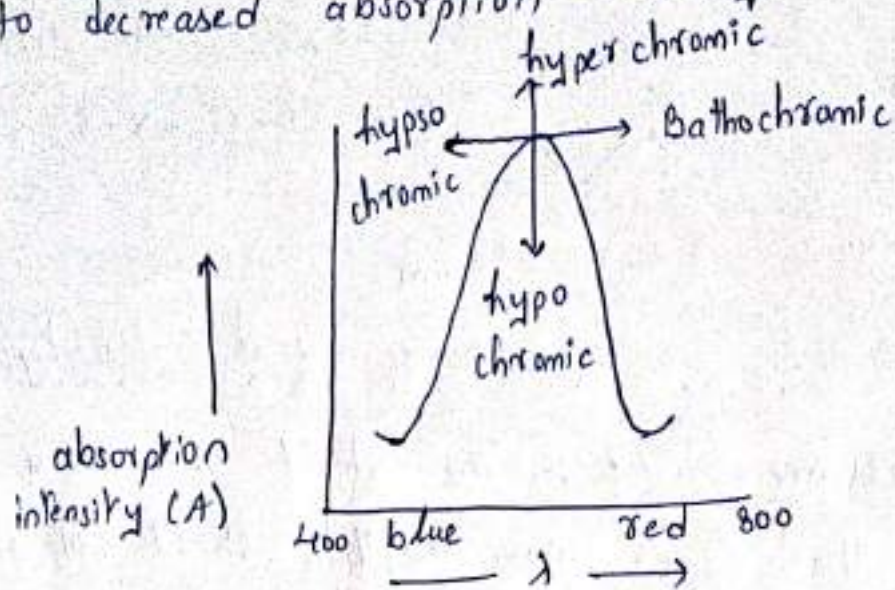 to decreased absorption
hyper chromic
hypso
chromic
Bathochromic
hypo
chromic
absorption
intensity (A)
400 blue red 800
λ